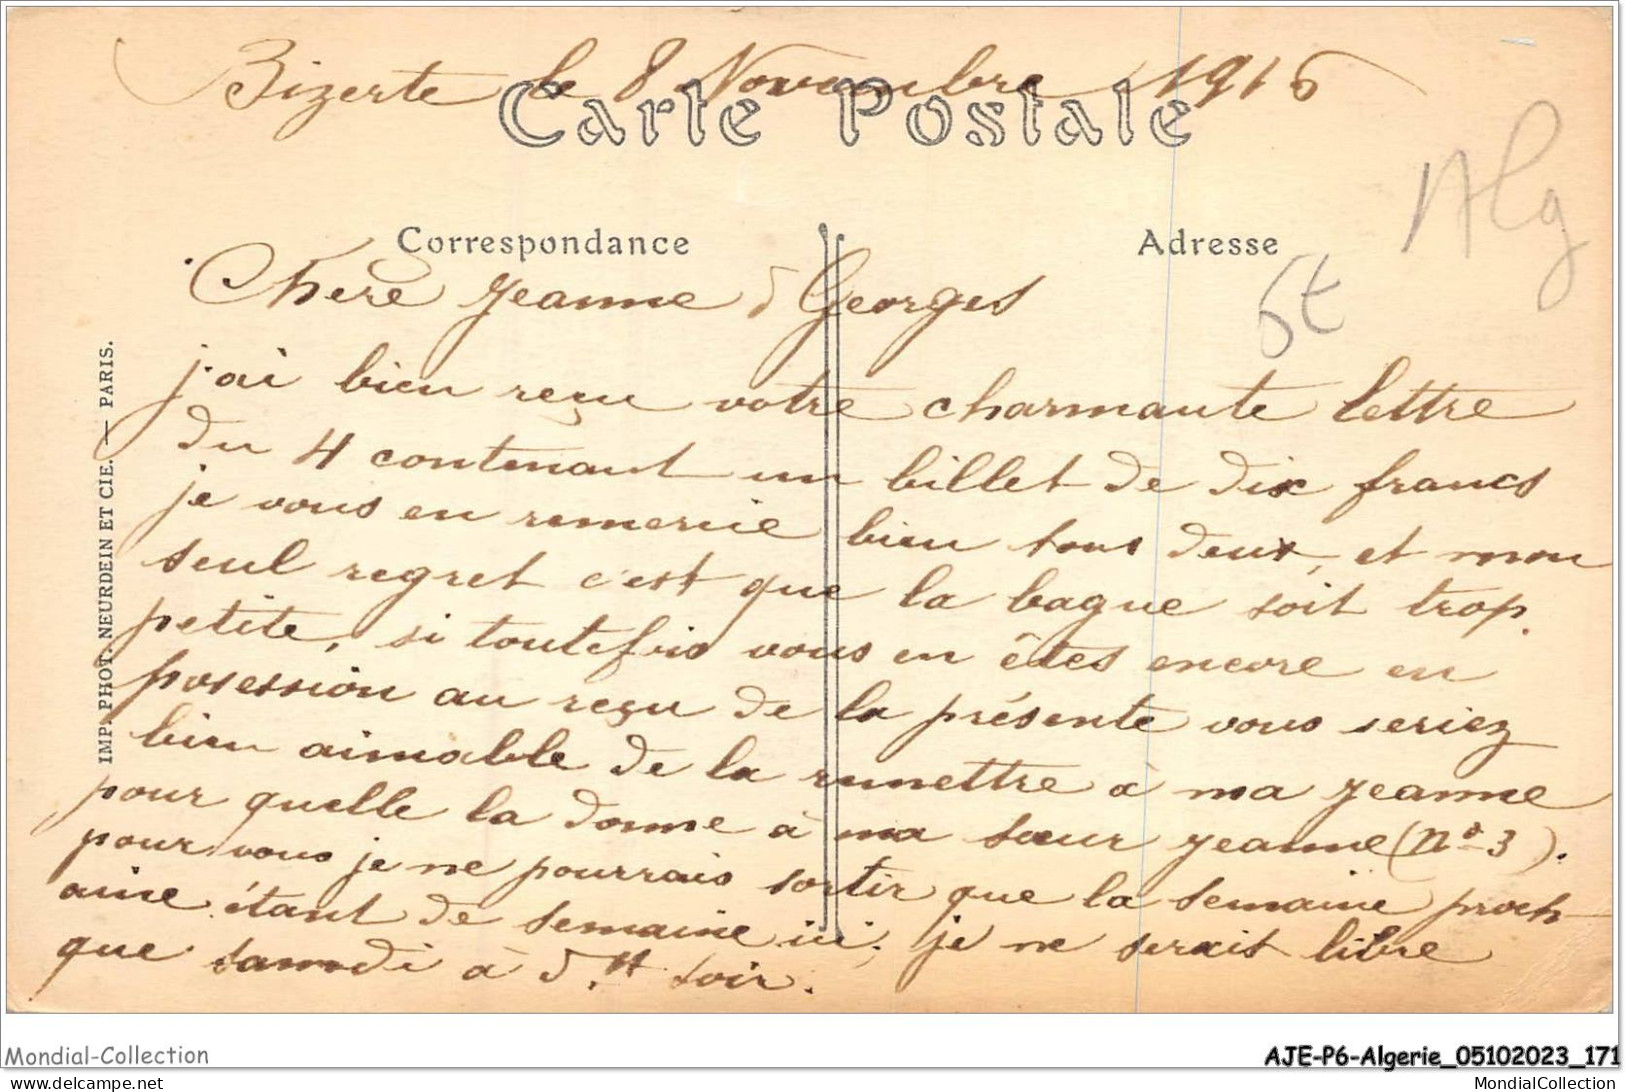 Bizerte le 8 Novembre 1916
Carte Postale
Alg
Correspondance
Adresse
6t
Chère Jeanne & Georges
j'ai bien reçu votre charmante lettre
du 4 contenant un billet de dix francs
je vous en remercie bien tous deux, et mon
seul regret c'est que la bague soit trop
petite, si toutefois vous en êtes encore en
posession au reçu de la présente vous seriez
bien aimable de la remettre à ma Jeanne
pour quelle la donne à ma sœur Jeanne (nº 3).
pour vous je ne pourrais sortir que la semaine proch-
aine étant de semaine ici; je ne serais libre
que samedi à 5 H soir.
IMP. PHOT. NEURDEIN ET CIE. — PARIS.
Mondial-Collection
AJE-P6-Algerie_05102023_171
delcampe.net
MondialCollection